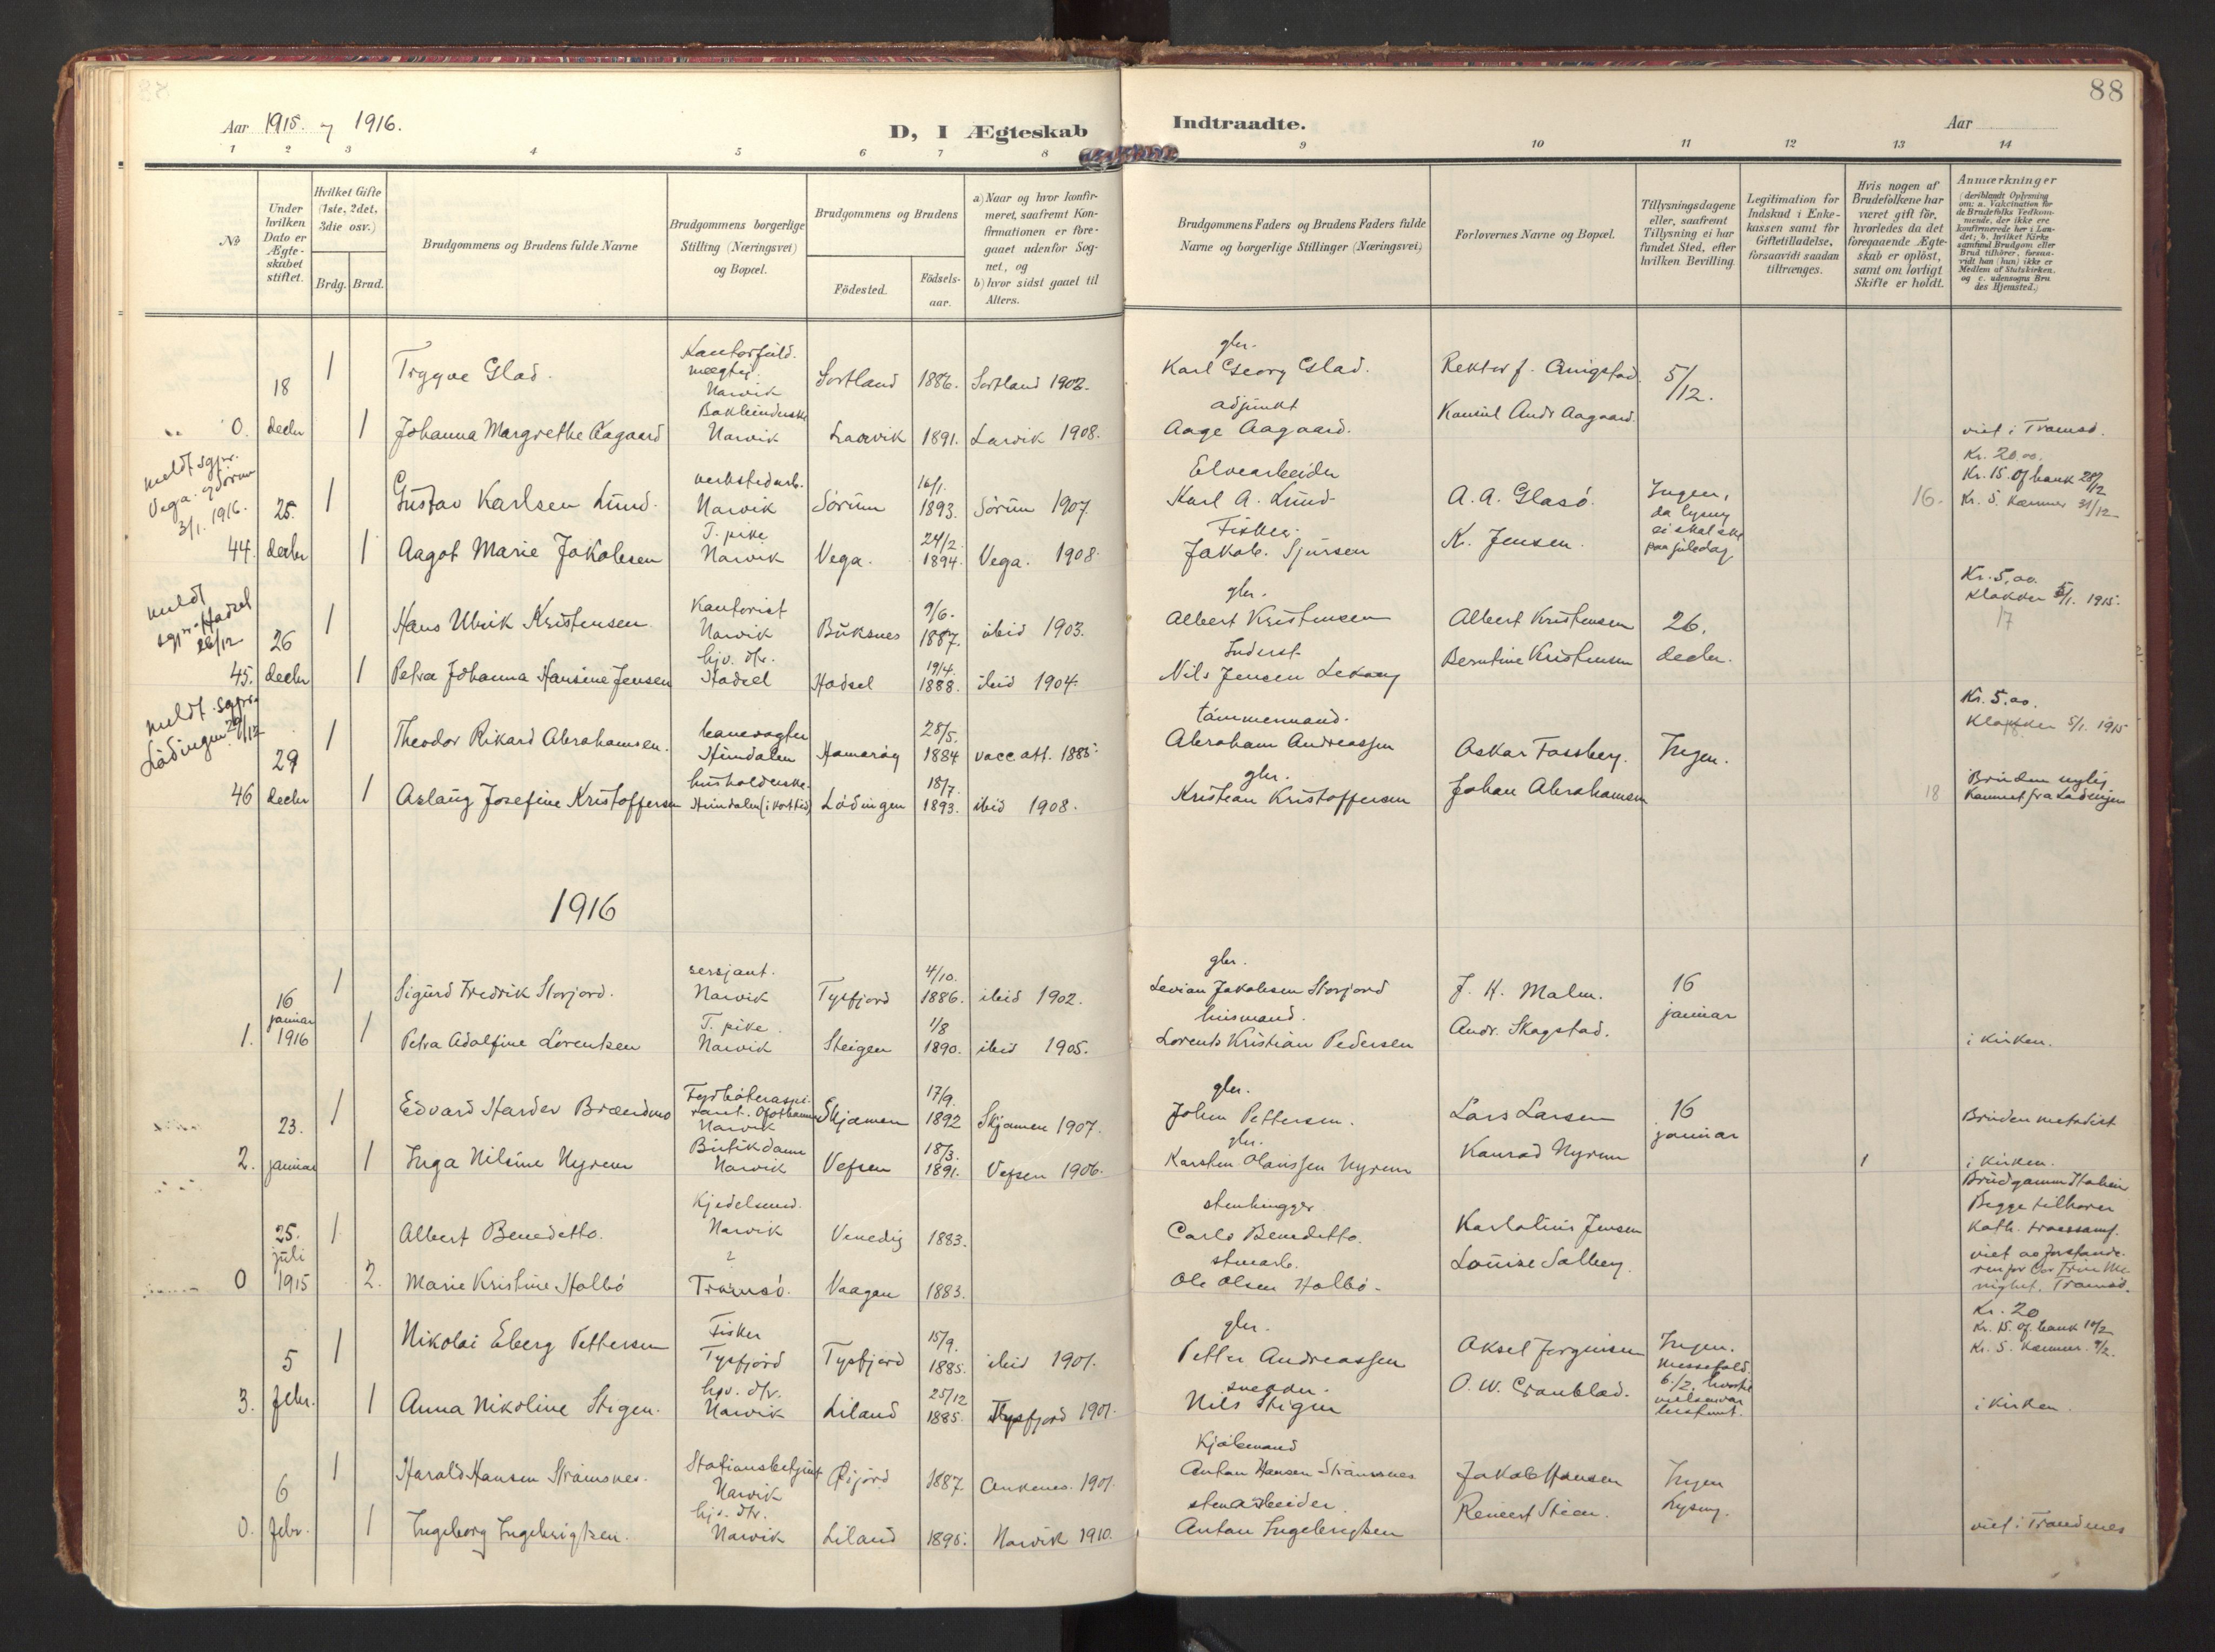 88
Aar 1915. og 1916.
D, I Ægteskab Indtraadte.
Aar
1 2 3 4 5 6 7 8 9 10 11 12 13 14
No
Under hvilken Dato er Ægteskabet stiftet.
Hvilket Gifte (1ste, 2det, 3die osv.)
Brdg. Brud.
Brudgommens og Brudens fulde Navne
Brudgommens borgerlige Stilling (Næringsvei) og Bopæl.
Brudgommens og Brudens
Födested. Födsels-aar.
a) Naar og hvor konfirmeret, saafremt Konfirmationen er foregaaet udenfor Sognet, og
b) hvor sidst gaaet til Alters.
Brudgommens Faders og Brudens Faders fulde Navne og borgerlige Stillinger (Næringsvei)
Forlovernes Navne og Bopæl.
Tillysningsdagene eller, saafremt Tillysning ei har fundet Sted, efter hvilken Bevilling.
Legitimation for Indskud i Enkekassen samt for Giftetilladelse, forsaavidt saadan tiltrænges.
Hvis nogen af Brudefolkene har været gift för, hvorledes da det foregaaende Ægteskab er oplöst, samt om lovligt Skifte er holdt.
Anmærkninger
(deriblandt Oplysning om: a. Vakcination for de Brudefolks Vedkommende, der ikke ere konfirmerede her i Landet; b. hvilket Kirkesamfund Brudgom eller Brud tilhörer, forsaavidt han (hun) ikke er Medlem af Statskirken, og c. udensogns Brudes Hjemsted.)
18 1 Trygve Glad. Narvik Sortland 1886. Sortland 1902.
gbr. Karl Georg Glad. Rektor 5/12.
0. decbr 1 Johanna Margrethe Aagaard Narvik Laurvik 1891. Larvik 1908.
adjunkt Aage Aagaard. Konsul Andr Aagaard. viet i Tromsø.
meldt sgpr. Vega. og Sörum 3/1. 1916.
25. 1 Gustav Karlsen Lund. verkstedarb. Narvik Sörum 16/1. 1893. Sörum 1907.
Elvearbeider Karl A. Lund A. A. Glasö. Ingen, da lysning ei skal ske paa juledag 16.
Kr. 20.00.
Kr. 15. Of bank 28/12
Kr. 5. Kæmner 31/12
44. decbr 1 Aagot Marie Jakobsen T. pike Narvik Vega. 24/2. 1894. Vega. 1908.
Fisker Jakob. Sjursen K. Jensen.
meldt sgpr. Hadsel 28/12
26 1 Hans Ulrik Kristensen Kontorist Narvik Buksnes 9/6. 1887. ibid 1903.
gbr. Albert Kristensen Albert Kristensen 26. decbr.
Kr. 5,00.
Klokker 5/1. 1915.
17
45. decbr 1 Petra Johanna Hansine Jensen hjv. dtr. Hadsel Hadsel 19/4. 1888. ibid 1904.
Inderst. Nils Jensen Lekang Berntine Kristensen
meldt. sgpr. Lödingen 29/12
29 1 Theodor Rikard Abrahamsen. banevogter Hundalen Hamaröy 28/5. 1884 vacc att. 1885.
tömmermand. Abraham Andreassen Oskar Fossberg. Ingen.
Kr. 5,00.
Klokker 5/1. 1915
46 decbr 1 Aslaug Josefine Kristoffersen husholderske. Hundalen Lödingen 18/7. 1893. ibid 1908.
gbr. Kristian Kristoffersen Johan Abrahamsen 18
Bruden nylig kommet fra Lødingen
1916
16 1 Sigurd Fredrik Storjord. sersjant. Narvik Tysfjord 4/10. 1886. ibid 1902.
gbr. Levian Jakobsen Storjord J. K. Malm. 16 januar
1. januar 1916 1 Petra Adolfine Lorentsen T. pike. Narvik Steigen 1/8 1890. ibid 1905.
husmand. Lorents Kristian Pedersen Andr. Skogstad. i kirken.
23. 1 Edvard Harder Brændmo Fyrböteraspirant. Ofotbanen Narvik Skjomen 17/9. 1892 Skjomen 1907.
gbr. Johan Pettersen. Lars Larsen 16 januar Bruden metodist
2. januar 1 Inga Nilsine Nyrem Butikdame Narvik Vefsen 18/3. 1891. Vefsen 1906.
gbr. Karsten Olaussen Nyrem Konrad Nyrem 1 i kirken.
25. 1 Albert Benedetto. Kjedelsmed. Narvik Venedig 1883.
stenhugger Carlo Benedetto. Karlotius Jensen
Brudgommen Italien
Begge tilhører
kath. troessamf.
0 juli 1915 2. Marie Kristine Holbö ? Tromsö. Vaagan 1883.
stenarb. Ole Olsen Holbö. Louise Solberg.
5 1 Nikolai Eberg Pettersen Fisker Tysfjord Tysfjord 15/9. 1885. ibid 1901.
gbr. Petter Andreassen Aksel Jorgensen Ingen.
Kr. 20
Kr. 15. Of. bank 10/2
Kr. 5. Kæmner. 9/2.
3. febr. 1 Anna Nikoline Stigen. hjv. dtr. Narvik Liland 25/12 1885. Tysfjord 1901.
Nils Stigen O. W. Cronblad. i kirken.
6 1 Harald Hansen Strömsnes. Stationsbetjent Narvik 1887. Ankenes. 1901.
Anton Hansen Strömsnes Jakob Hansen Ingen lysning.
0. febr. 1 Ingeborg Ingebrigtsen. hjv. dtr. Narvik Liland 1895. Narvik 1910.
stenarbeider. Anton Ingebrigtsen viet i Trondenes